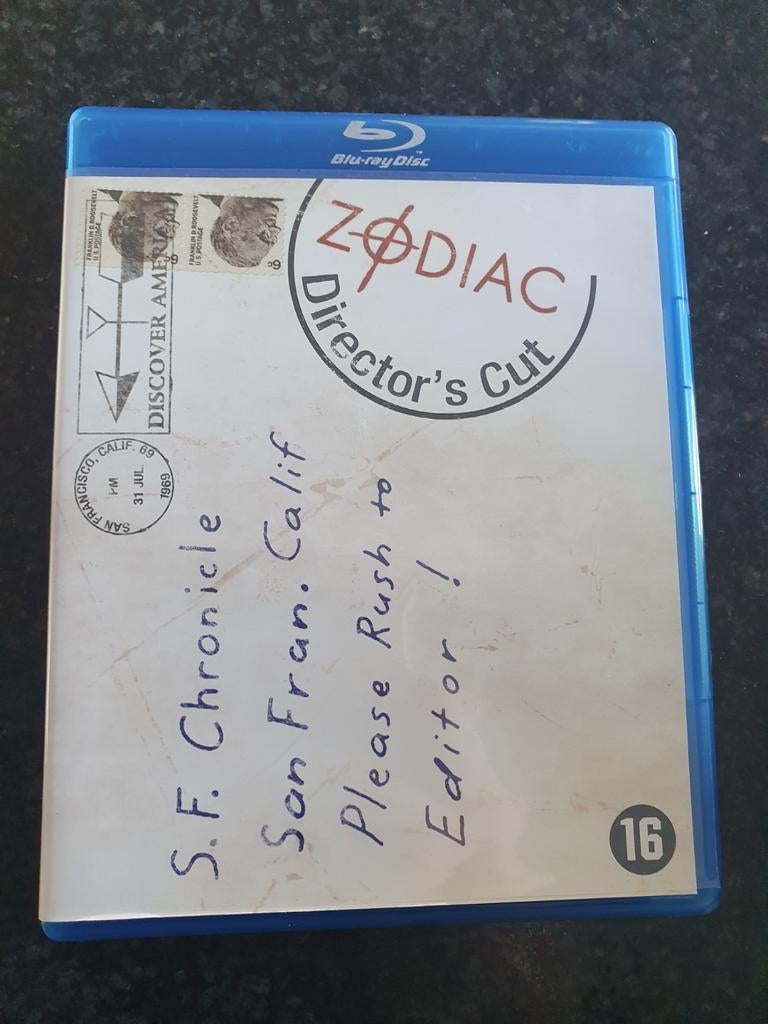 Blu-ray Disc
TM
FRANKLIN D. ROOSEVELT
U.S. POSTAGE
6c
FRANKLIN D. ROOSEVELT
U.S. POSTAGE
6c
ZODIAC
Director's Cut
DISCOVER AMERICA
SAN FRANCISCO, CALIF. 69
PM
31 JUL
1969
S.F. Chronicle
San Fran. Calif
Please Rush to
Editor!
16